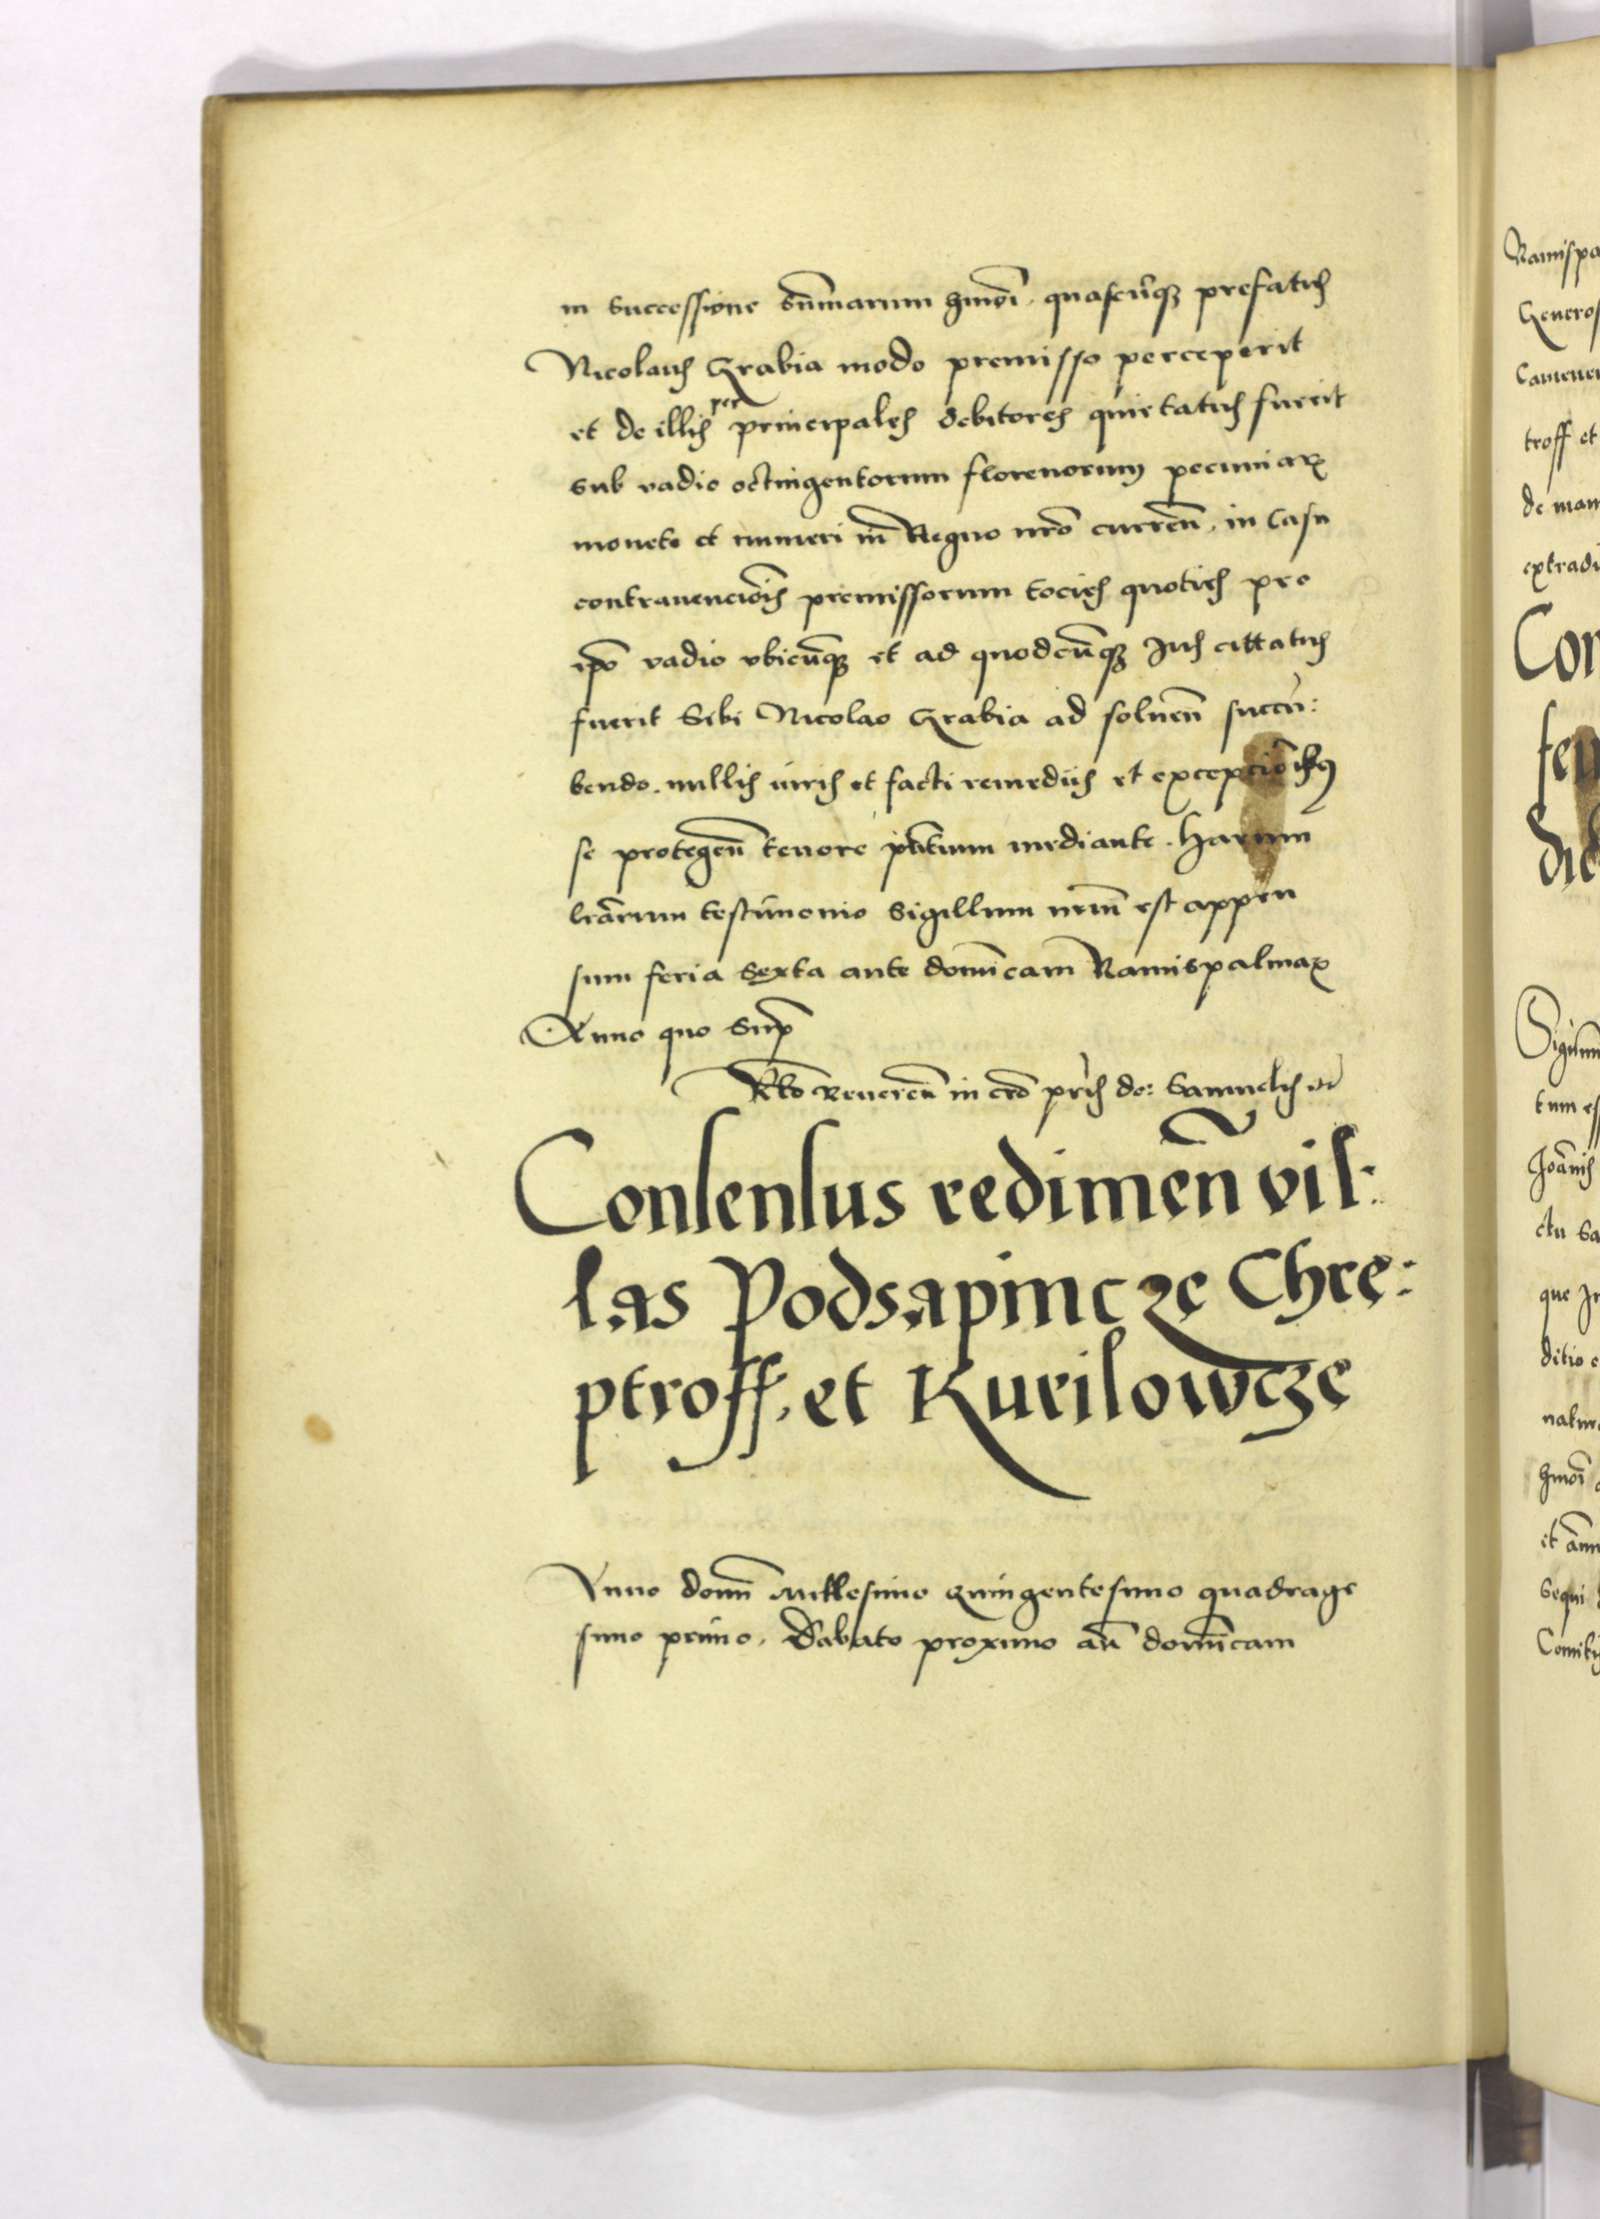 in successione sūmarum hmōi. quascūqꝫ prefatus
Nicolaus Grabia modo premisso perceperit
et de illis per principales debitores quietatus fuerit
sub vadio octingentorum florenorum pecuniaꝝ
monete et numeri in Regno nrō curreñ. in casu
contravencionis premissorum tocies quoties pro
ipō vadio vbicūqꝫ et ad quodcūqꝫ Jus cittatus
fuerit Sibi Nicolao Grabia ad solueñ succū:
bendo. nullis iuris et facti remediis et excepcionibꝰ
se protegeñ tenore pñtium mediante. Harum
lrārum testimonio Sigillum nrūm est appen
sum feria Sexta ante dominicam Ramispalmaꝝ
Anno quo Supͣ
Rtō Revereñ in crō pr̄is do: Samuelis etc̄
Consensus redimeñ vil:
las Podsapincze Chre:
ptroff, et Kurilowcze
Anno domī Millesimo Quingentesimo quadrage
simo primo. Sabato proximo añ dominicam
Ramispa
Generos
Camenen
troff et
de man
extradi
Con
sen
dic
Sigism
tum es
Joānis
ctu Sa
que Jn
ditio e
natur
hmōi
et ann
Sequi
Comiti